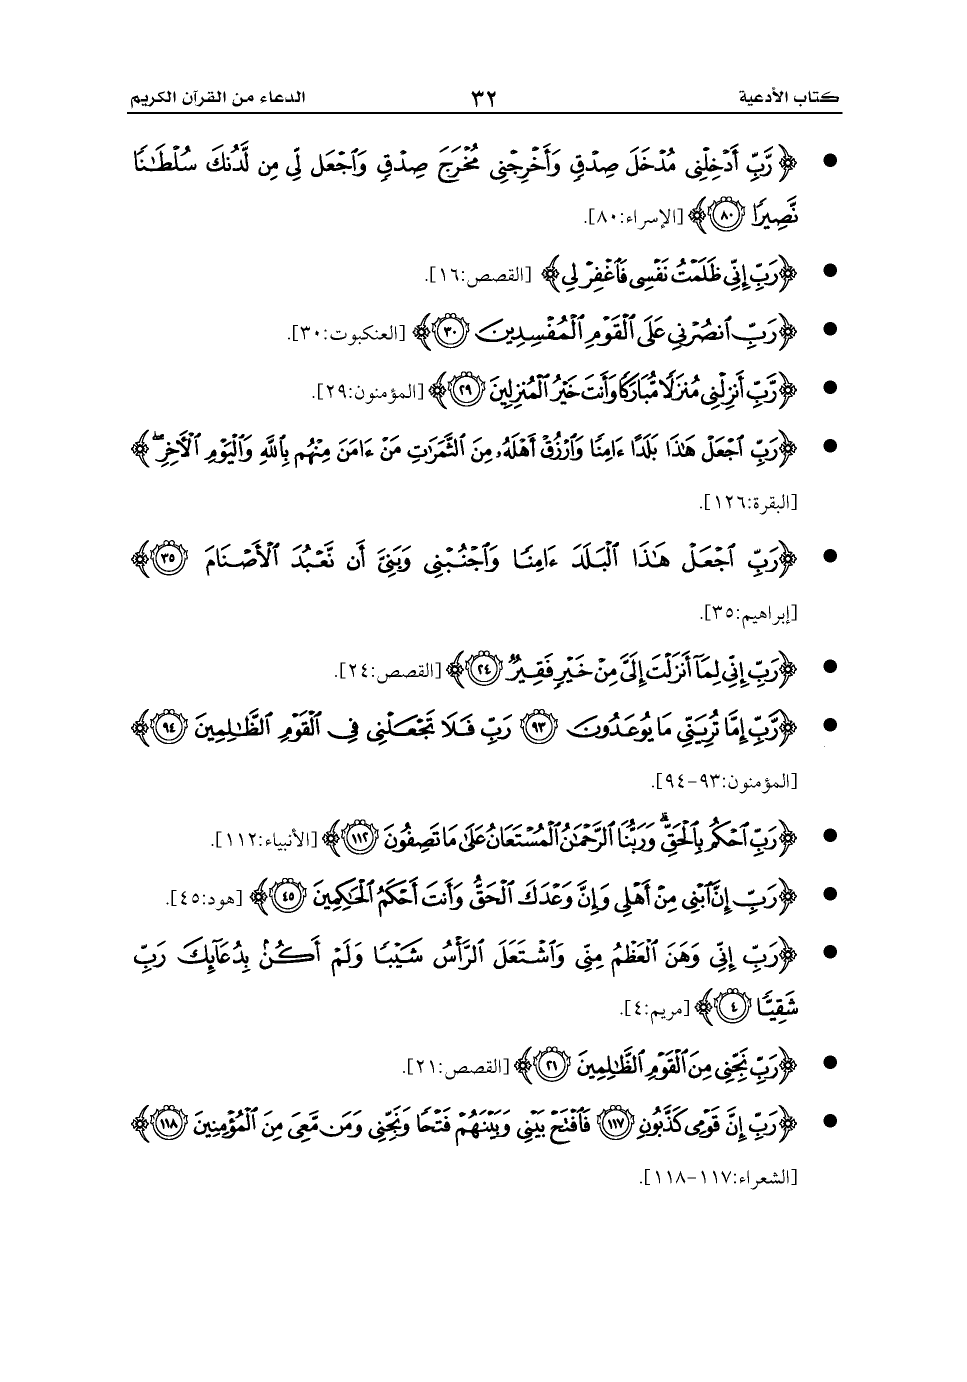 كتاب الأدعية ٣٢ الدعاء من القرآن الكريم
● ﴿رَّبِّ أَدْخِلْنِى مُدْخَلَ صِدْقٍ وَأَخْرِجْنِى مُخْرَجَ صِدْقٍ وَٱجْعَل لِّى مِن لَّدُنكَ سُلْطَـٰنًا
نَّصِيرًا ٨٠﴾ [الإسراء:٨٠].
● ﴿رَبِّ إِنِّى ظَلَمْتُ نَفْسِى فَٱغْفِرْ لِى﴾ [القصص:١٦].
● ﴿رَبِّ ٱنصُرْنِى عَلَى ٱلْقَوْمِ ٱلْمُفْسِدِينَ ٣٠﴾ [العنكبوت:٣٠].
● ﴿رَّبِّ أَنزِلْنِى مُنزَلًا مُّبَارَكًا وَأَنتَ خَيْرُ ٱلْمُنزِلِينَ ٢٩﴾ [المؤمنون:٢٩].
● ﴿رَبِّ ٱجْعَلْ هَـٰذَا بَلَدًا ءَامِنًا وَٱرْزُقْ أَهْلَهُۥ مِنَ ٱلثَّمَرَٰتِ مَنْ ءَامَنَ مِنْهُم بِٱللَّهِ وَٱلْيَوْمِ ٱلْـَٔاخِرِ ۖ﴾
[البقرة:١٢٦].
● ﴿رَبِّ ٱجْعَلْ هَـٰذَا ٱلْبَلَدَ ءَامِنًا وَٱجْنُبْنِى وَبَنِىَّ أَن نَّعْبُدَ ٱلْأَصْنَامَ ٣٥﴾
[إبراهيم:٣٥].
● ﴿رَبِّ إِنِّى لِمَآ أَنزَلْتَ إِلَىَّ مِنْ خَيْرٍ فَقِيرٌ ٢٤﴾ [القصص:٢٤].
● ﴿رَّبِّ إِمَّا تُرِيَنِّى مَا يُوعَدُونَ ٩٣ رَبِّ فَلَا تَجْعَلْنِى فِى ٱلْقَوْمِ ٱلظَّـٰلِمِينَ ٩٤﴾
[المؤمنون:٩٣-٩٤].
● ﴿رَبِّ ٱحْكُم بِٱلْحَقِّ ۗ وَرَبُّنَا ٱلرَّحْمَـٰنُ ٱلْمُسْتَعَانُ عَلَىٰ مَا تَصِفُونَ ١١٢﴾ [الأنبياء:١١٢].
● ﴿رَبِّ إِنَّ ٱبْنِى مِنْ أَهْلِى وَإِنَّ وَعْدَكَ ٱلْحَقُّ وَأَنتَ أَحْكَمُ ٱلْحَـٰكِمِينَ ٤٥﴾ [هود:٤٥].
● ﴿رَبِّ إِنِّى وَهَنَ ٱلْعَظْمُ مِنِّى وَٱشْتَعَلَ ٱلرَّأْسُ شَيْبًا وَلَمْ أَكُنۢ بِدُعَآئِكَ رَبِّ
شَقِيًّا ٤﴾ [مريم:٤].
● ﴿رَبِّ نَجِّنِى مِنَ ٱلْقَوْمِ ٱلظَّـٰلِمِينَ ٢١﴾ [القصص:٢١].
● ﴿رَبِّ إِنَّ قَوْمِى كَذَّبُونِ ١١٧ فَٱفْتَحْ بَيْنِى وَبَيْنَهُمْ فَتْحًا وَنَجِّنِى وَمَن مَّعِىَ مِنَ ٱلْمُؤْمِنِينَ ١١٨﴾
[الشعراء:١١٧-١١٨].